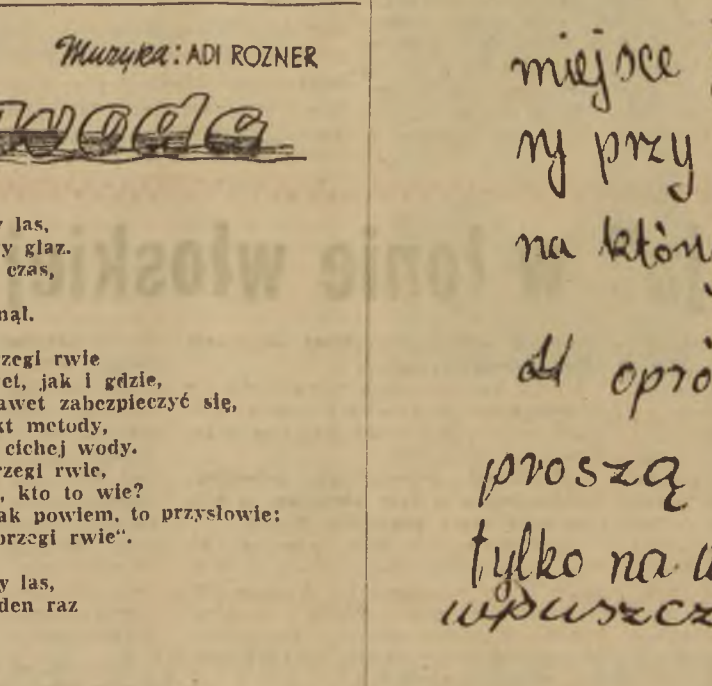 Muzyka: ADI ROZNER
woda
las,
y głaz.
czas,
nął.
rzegi rwie
et, jak i gdzie,
awet zabezpieczyć się,
kt metody,
cichej wody.
rzegi rwie,
, kto to wie?
ak powiem, to przysłowie:
brzegi rwie“.
y las,
den raz
miejsce
ry przy
na któr
opró
proszą
tylko na
wpuszcz